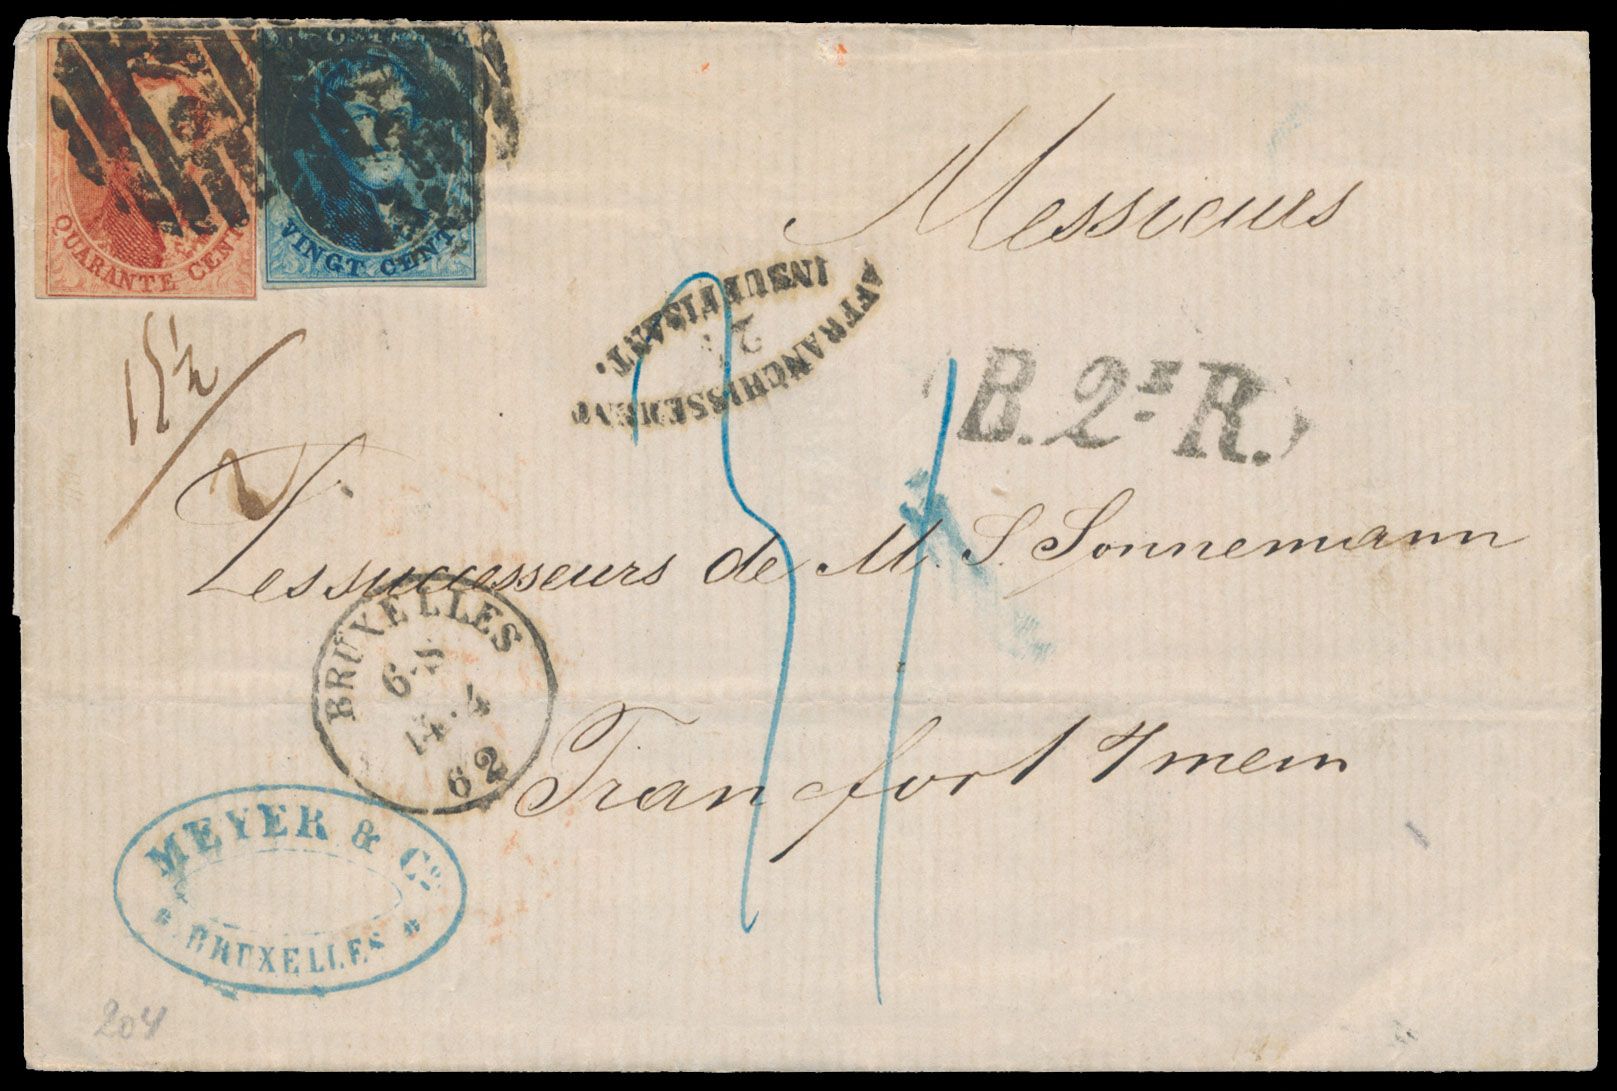 POSTES
QUARANTE CENT
VINGT CENT
Messieurs
AFFRANCHISSEMENT
INSUFFISANT.
2
15½
2
B. 2ᴱ R.
Les successeurs de M. S. Sonnemann
BRUXELLES
14 · 4
62
Francfort s/mein
MEYER & Cº.
BRUXELLES
204